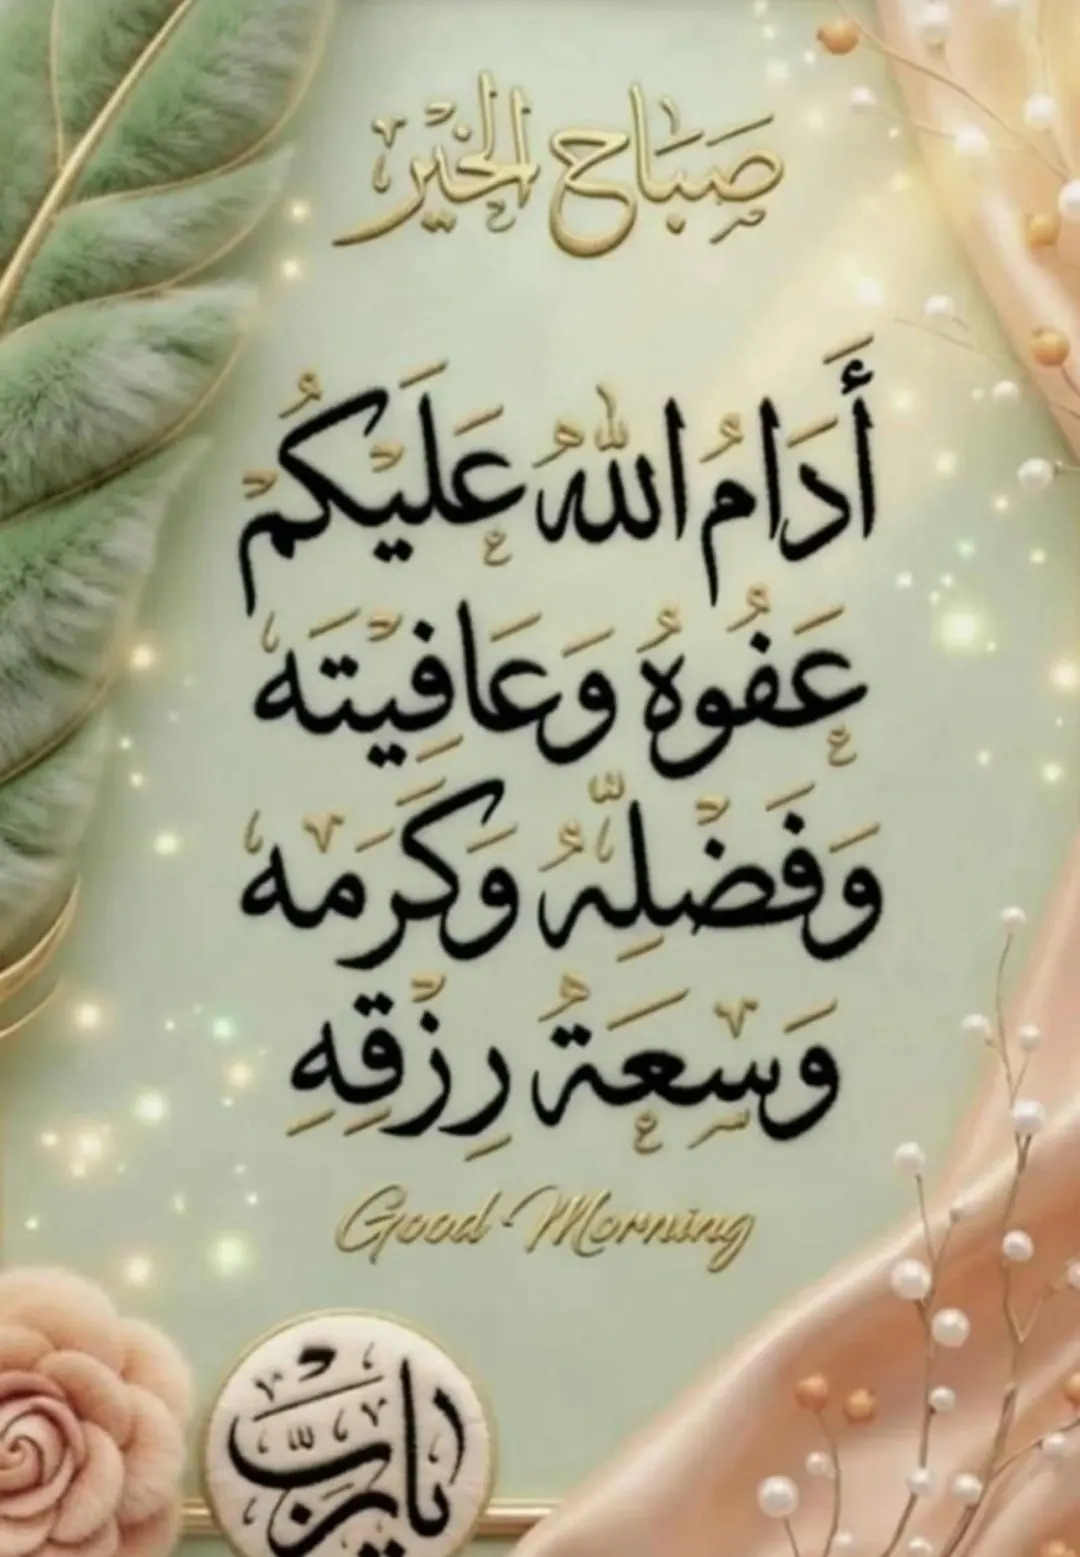 صَبَاح الخَيْر
أَدَامُ اللهُ عَلَيْكُمْ
عَفْوهُ وَعَافِيْتَه
وَفَضْلِهُ وَكَرَمه
وَسِعَةُ رِزْقِهِ
Good Morning
يارب